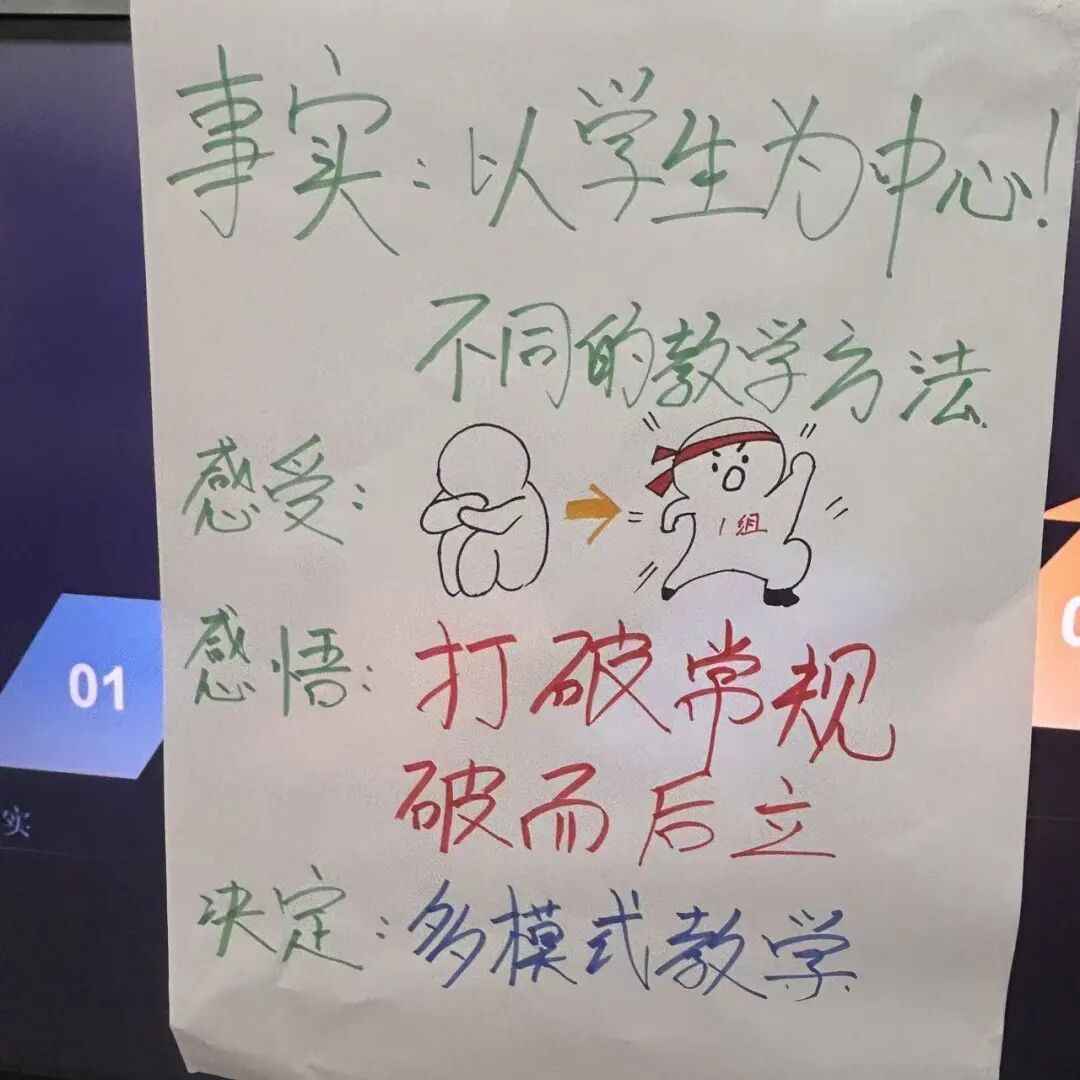 事实：以学生为中心！
不同的教学方法
感受：
1组
感悟：打破常规
破而后立
决定：多模式教学
01
实